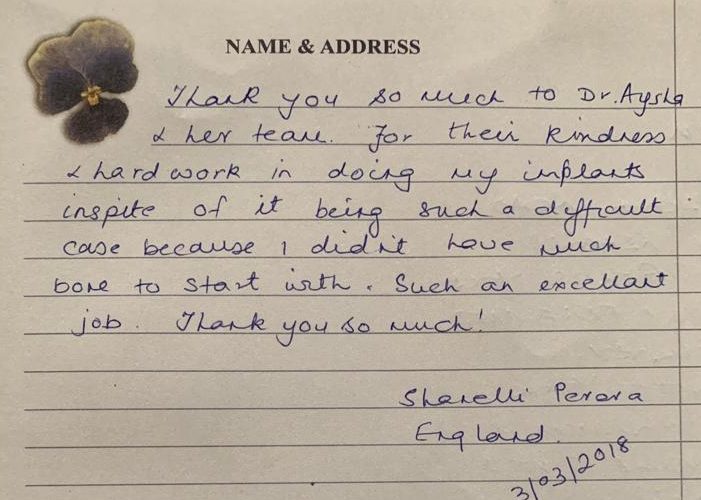 NAME & ADDRESS
Thank you so much to Dr. Aysha
& her team. For their kindness
& hard work in doing my implants
inspite of it being such a difficult
case because I didn't have much
bone to start with. Such an excellant
job. Thank you so much!
Sharelli Perera
England.
3/03/2018